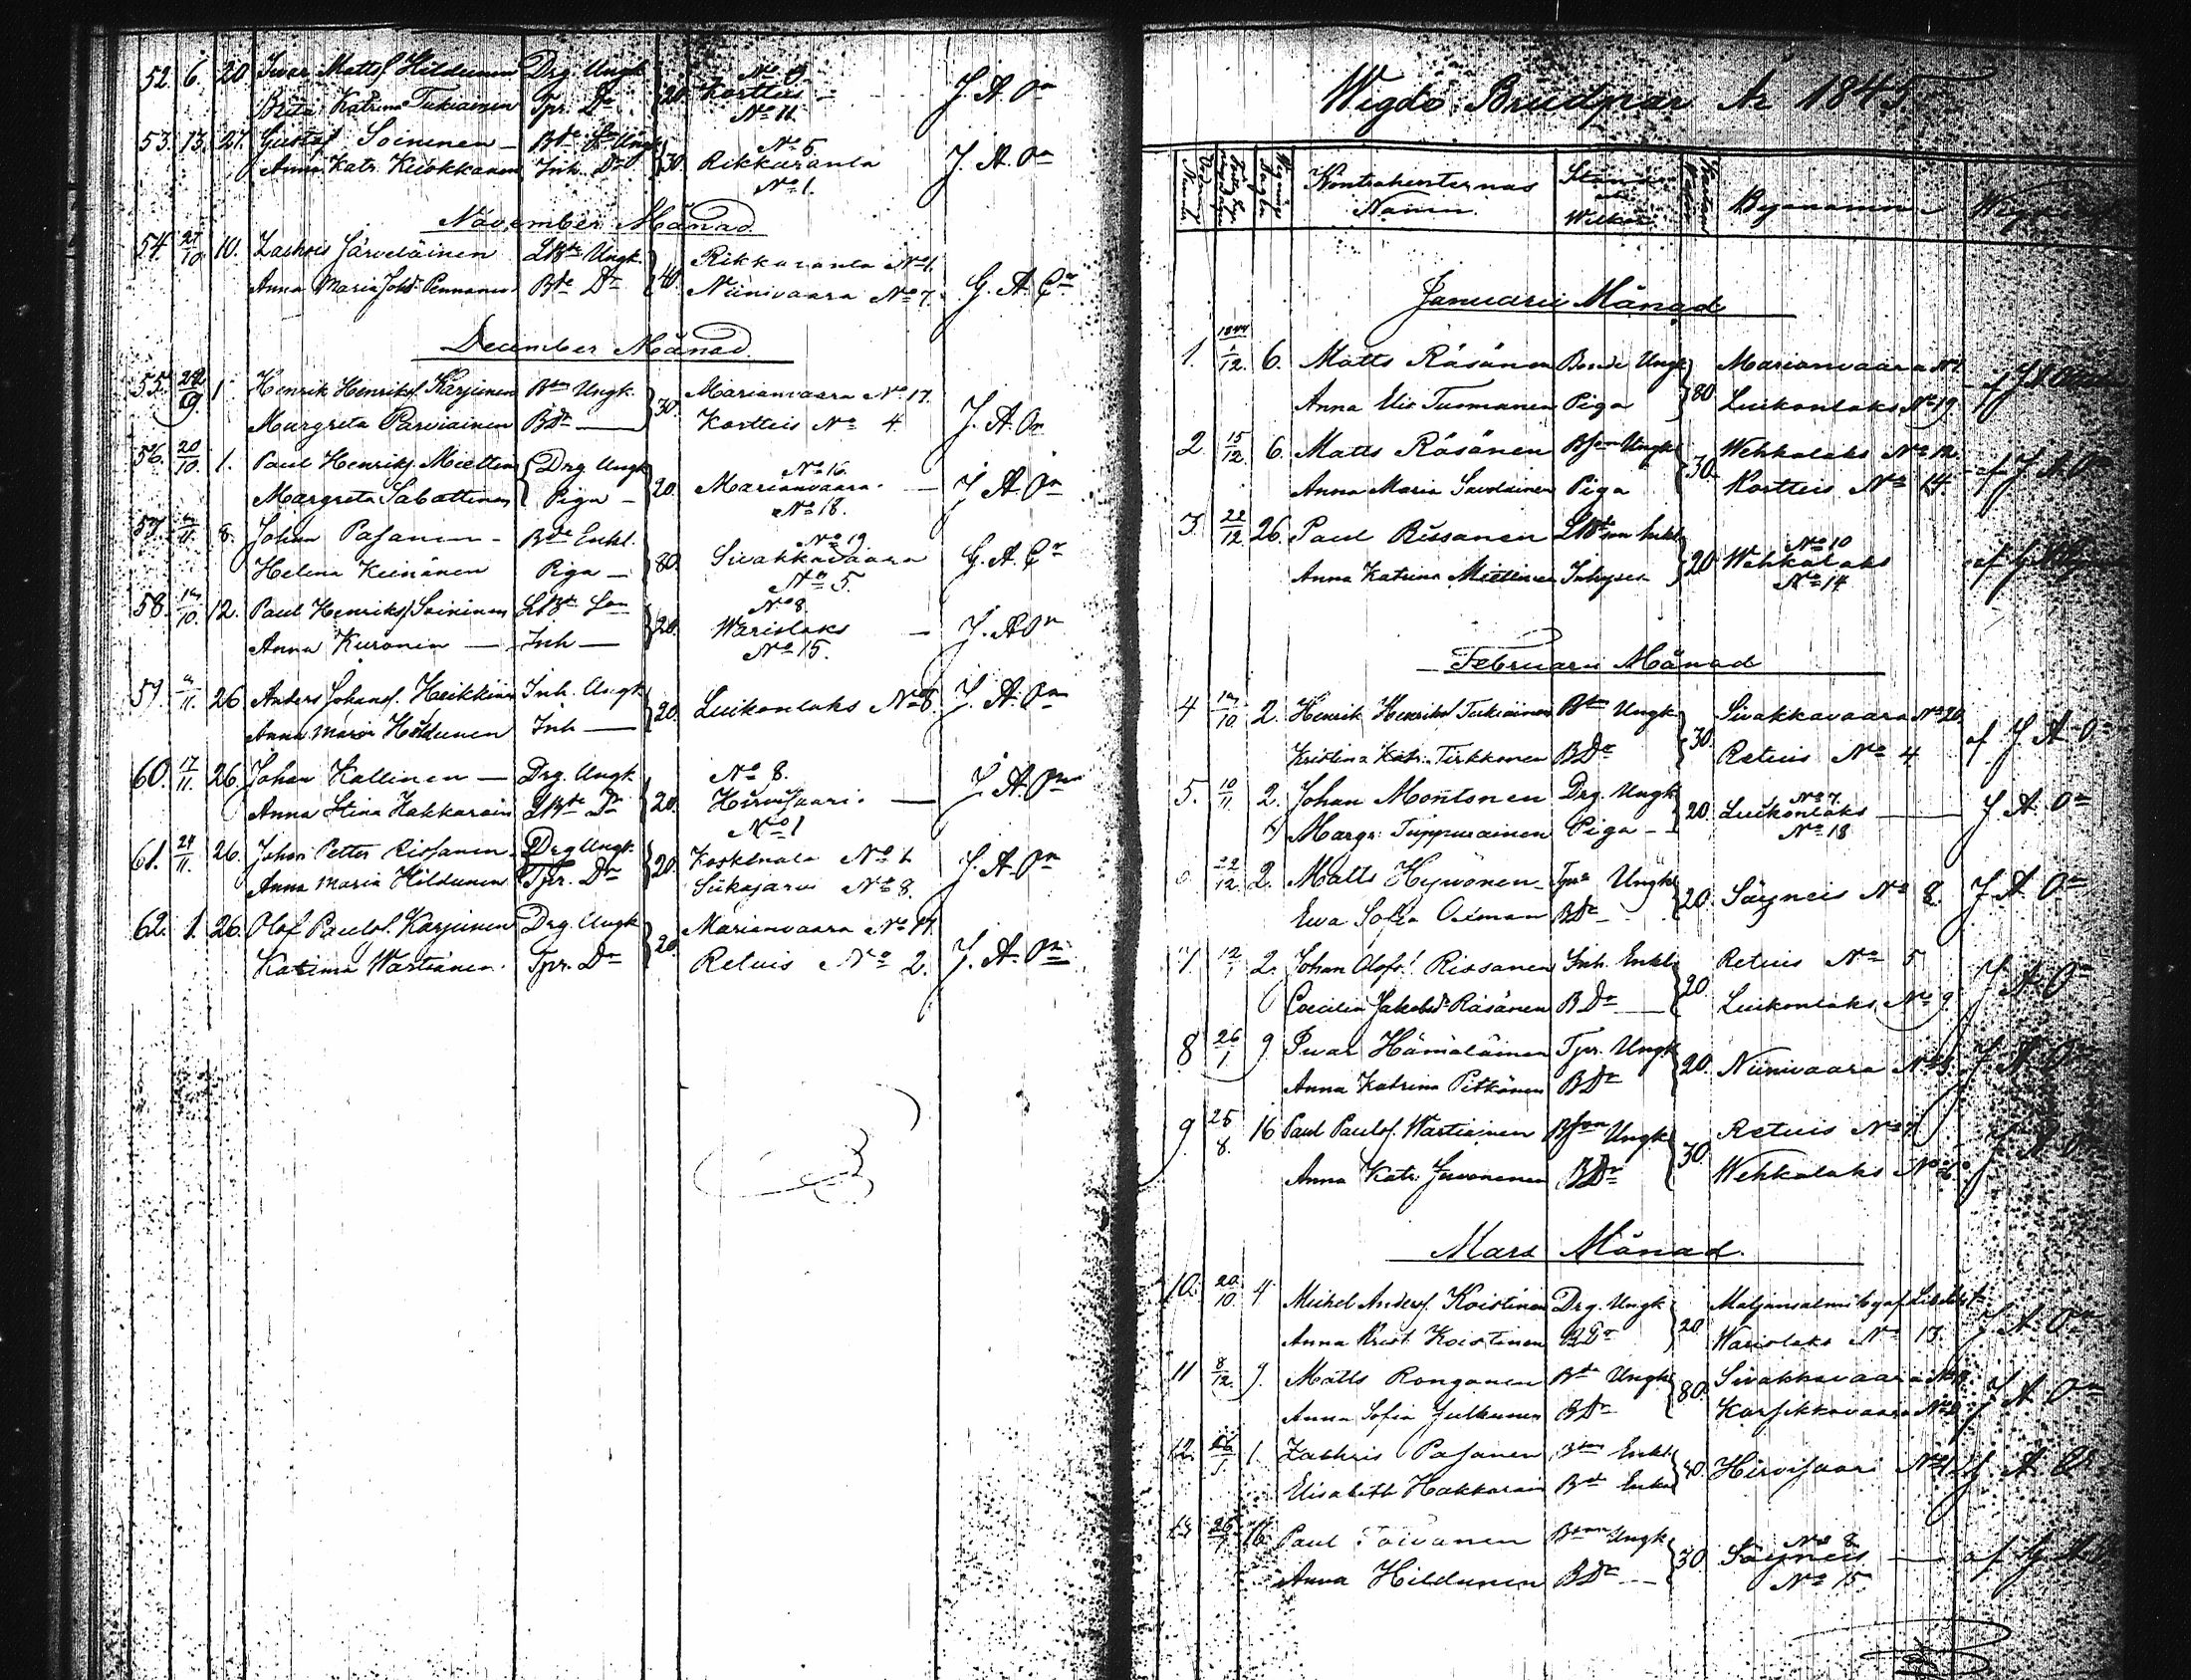 52. 6. 20 Ivar Mattsf Hildunen Drg. Ungk No 9.
Brita Katrina Tukiainen Tpr. Dr 20. Kortteis — J. A. On
No 11.
53. 13. 27. Gustaf Soininen — Bde Sn Ungk No 5.
Anna Katr. Kuokkanen Inh. Dr 30. Rikkaranta J. A. On
No 1.
November Månad
54. 27/10. 10. Zachris Järveläinen LBde Ungk. Rikkaranta No 1.
Anna Maria Johsdr Pennanen Bde Dr 40. Niinivaara No 7. G. A. Cr
December Månad
55. 22/9. 1. Henrik Henriksf. Karjunen Bson Ungk. Marianvaara No 17.
Margreta Parviainen BDr — 30. Kortteis No 4 J. A. On
56. 20/10. 1. Paul Henriksf. Miettinen Drg. Ungk No 16.
Margreta Sabattinen Piga — 20. Marianvaara. — J. A. On
No 18.
57. /11. 8. Johan Pasanen — Bde Enkl. No 19
Helena Keinänen Piga — 80. Sivakkavaara G. A. Cr
No 5.
58. /10. 12. Paul Henriksf Soininen LBde Son No 8.
Anna Kuronen — Inh — 20. Warislaks — J. A. On
No 15.
59. /11. 26 Anders Johansf. Heikkinen Inh. Ungk
Anna Maria Hildunen Inh — 20. Luikonlaks No 8. J. A. On
60. 17/11. 26. Johan Kallinen — Drg. Ungk No 8.
Anna Stina Hakkarain LBde Dr 20. Hirvisaari. — J. A. On
No 1
61. 24/11. 26. Johan Petter Rissanen. Drg Ungk. Koskenala No 1
Anna Maria Hildunen Tpr. Dr 20. Siikajärvi No 8. J. A. On
62. 1. 26. Olof Paulsf. Karjunen Drg. Ungk Marianvaara No 17.
Katrina Wartiainen. Tpr. Dr 20. Retuis No 2. J. A. On
Wigde Brudpar År 1845
Kontrahenternas Namn. Stånd och Wilkor Bynamn
Januarii Månad
1844
1. /12. 6. Matts Räsänen Bonde Ungk Marianvaara No 1.
Anna Elis Tuomanen Piga 80 Luikonlaks No 19.
2. 15/12. 6. Matts Räsänen Bson Ungk Wehkalaks No 12.
Anna Maria Savolainen Piga 30. Kortteis No 14. af J. A. On
3. 22/12. 26. Paul Rissanen LBdeson Enkl No 10
Anna Katrina Miettinen Inhyses 20 Wehkalaks
No 14
Februarii Månad
4 /10. 2. Henrik Henriksf Tukiainen Bson Ungk Sivakkavaara No 20.
Kristina Katr. Tirkkonen BDr 30. Retuis No 4 af J. A. On
5. 10/11. 2. Johan Montonen Drg. Ungk No 7.
Margr. Tuppurainen Piga — 20. Luikonlaks — J. A. On
No 18
22/12. 2. Matts Hyvönen — Tpr Ungk
Ewa Sofia Axman BDr — 20. Säyneis No 8. J. A. On
7. 12/1 2. Johan Olofsf. Rissanen Inh. Enkl. Retuis No 5
Cecilia Jakobsdr Räsänen BDr — 20 Luikonlaks No 9. J. A. On
8 26/1 9 Ivar Hämäläinen Tpr. Ungk
Anna Katrina Pitkänen BDr 20. Niinivaara No J. A. On
9. 25/8. 16 Paul Paulsf. Wartiainen Bson Ungk. Retuis No 7
Anna Katr. Juvonenen BDr 30. Wehkalaks No 6. J. A. On
Mars Månad.
10. 20/10. 4 Michel Andersf. Koistinen Drg. Ungk Maljansalmi by af
Anna Krist. Koistinen BDr 20. Warislaks No 13. J. A. On
11 8/12. 9. Matts Ronganen Bde Ungk Sivakkavaara No 9.
Anna Sofia Julkunen BDr 80. Karsikkovaara No 2. J. A. On
12. 1. Zachris Pasanen Bson Enkl.
Elisabeth Hakkarain Bde Enka Hirvisaari No
26/ 16. Paul Toivanen Bson Ungk. No 8.
Anna Hildunen BDr — 30. Säyneis —
No 15.